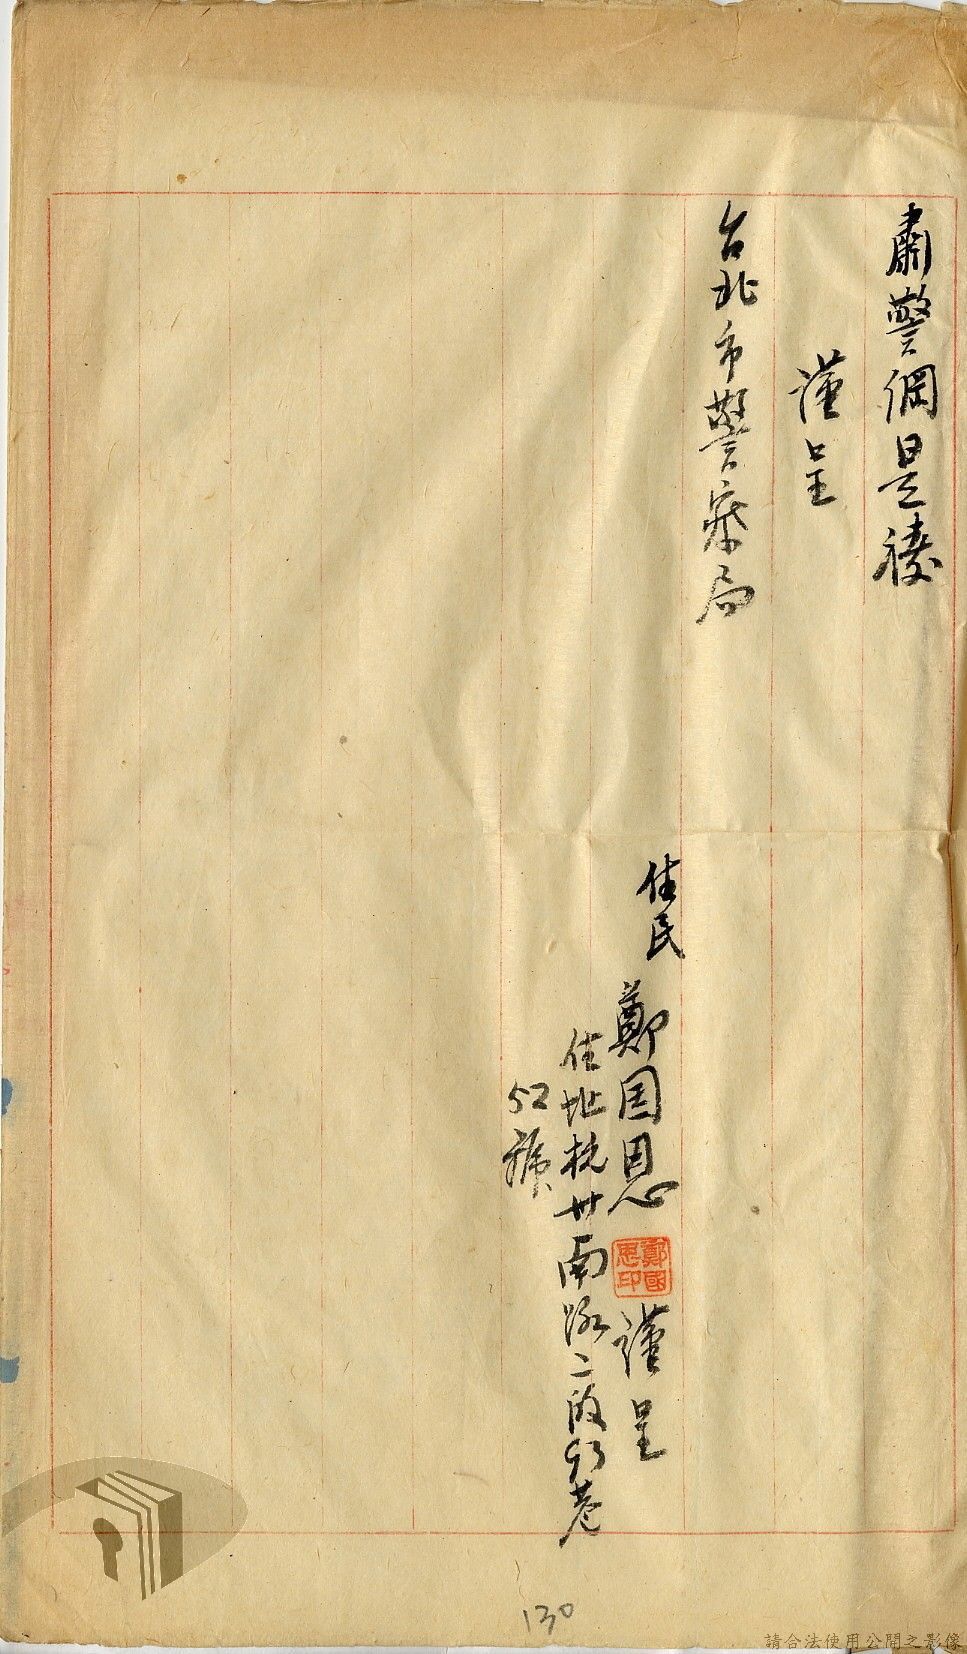 肅警綱是禱
謹呈
台北市警察局
住民 鄭国恩 鄭國恩印 謹呈
住址杭州南路二段93巷
52號
130
請合法使用公開之影像